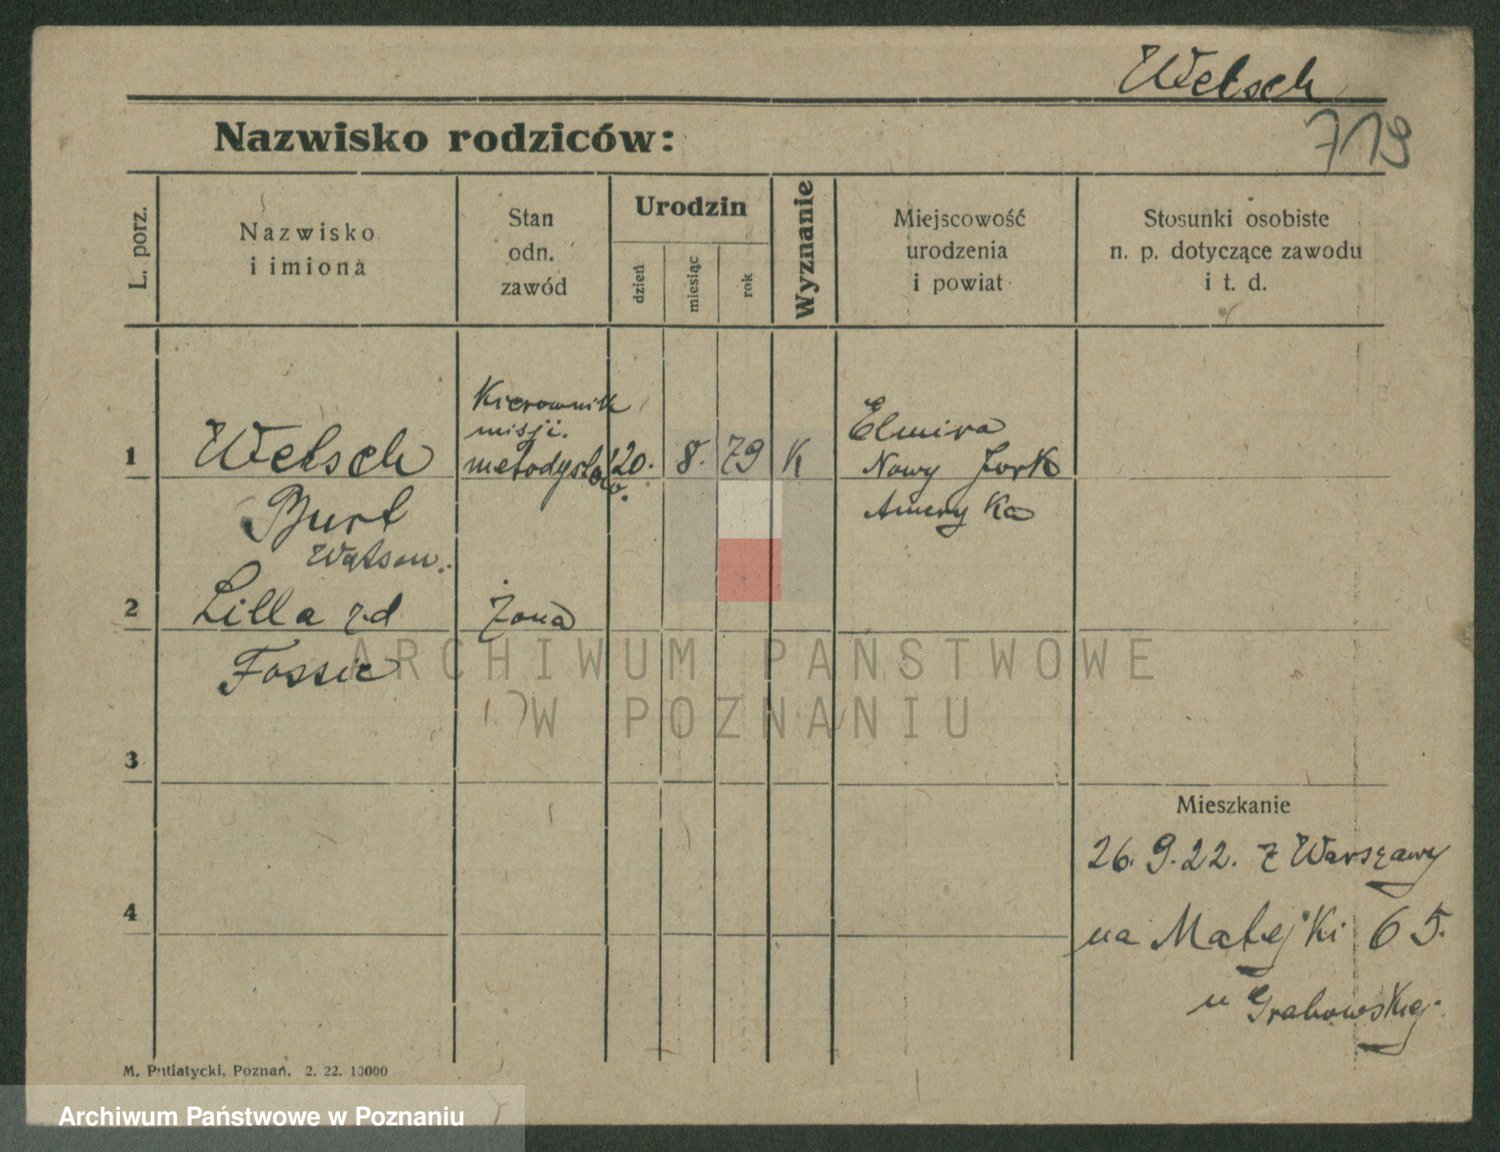 Welsch
719
Nazwisko rodziców:
L. porz.
Nazwisko
i imiona
Stan
odn.
zawód
Urodzin
dzień
miesiąc
rok
Wyznanie
Miejscowość
urodzenia
i powiat
Stosunki osobiste
n. p. dotyczące zawodu
i t. d.
Kierownik
misji.
1 Welsch metodystów. 20. 8. 79 K
Elmira
Nowy Jork
Ameryka
Burt
Watson.
2 Lilla z.d Żona
Fossie
ARCHIWUM PAŃSTWOWE
W POZNANIU
3
Mieszkanie
26.9.22. z Warszawy
4
na Matejki 65.
u Grabowskiej.
M. Putiatycki, Poznań. 2. 22. 10000
Archiwum Państwowe w Poznaniu